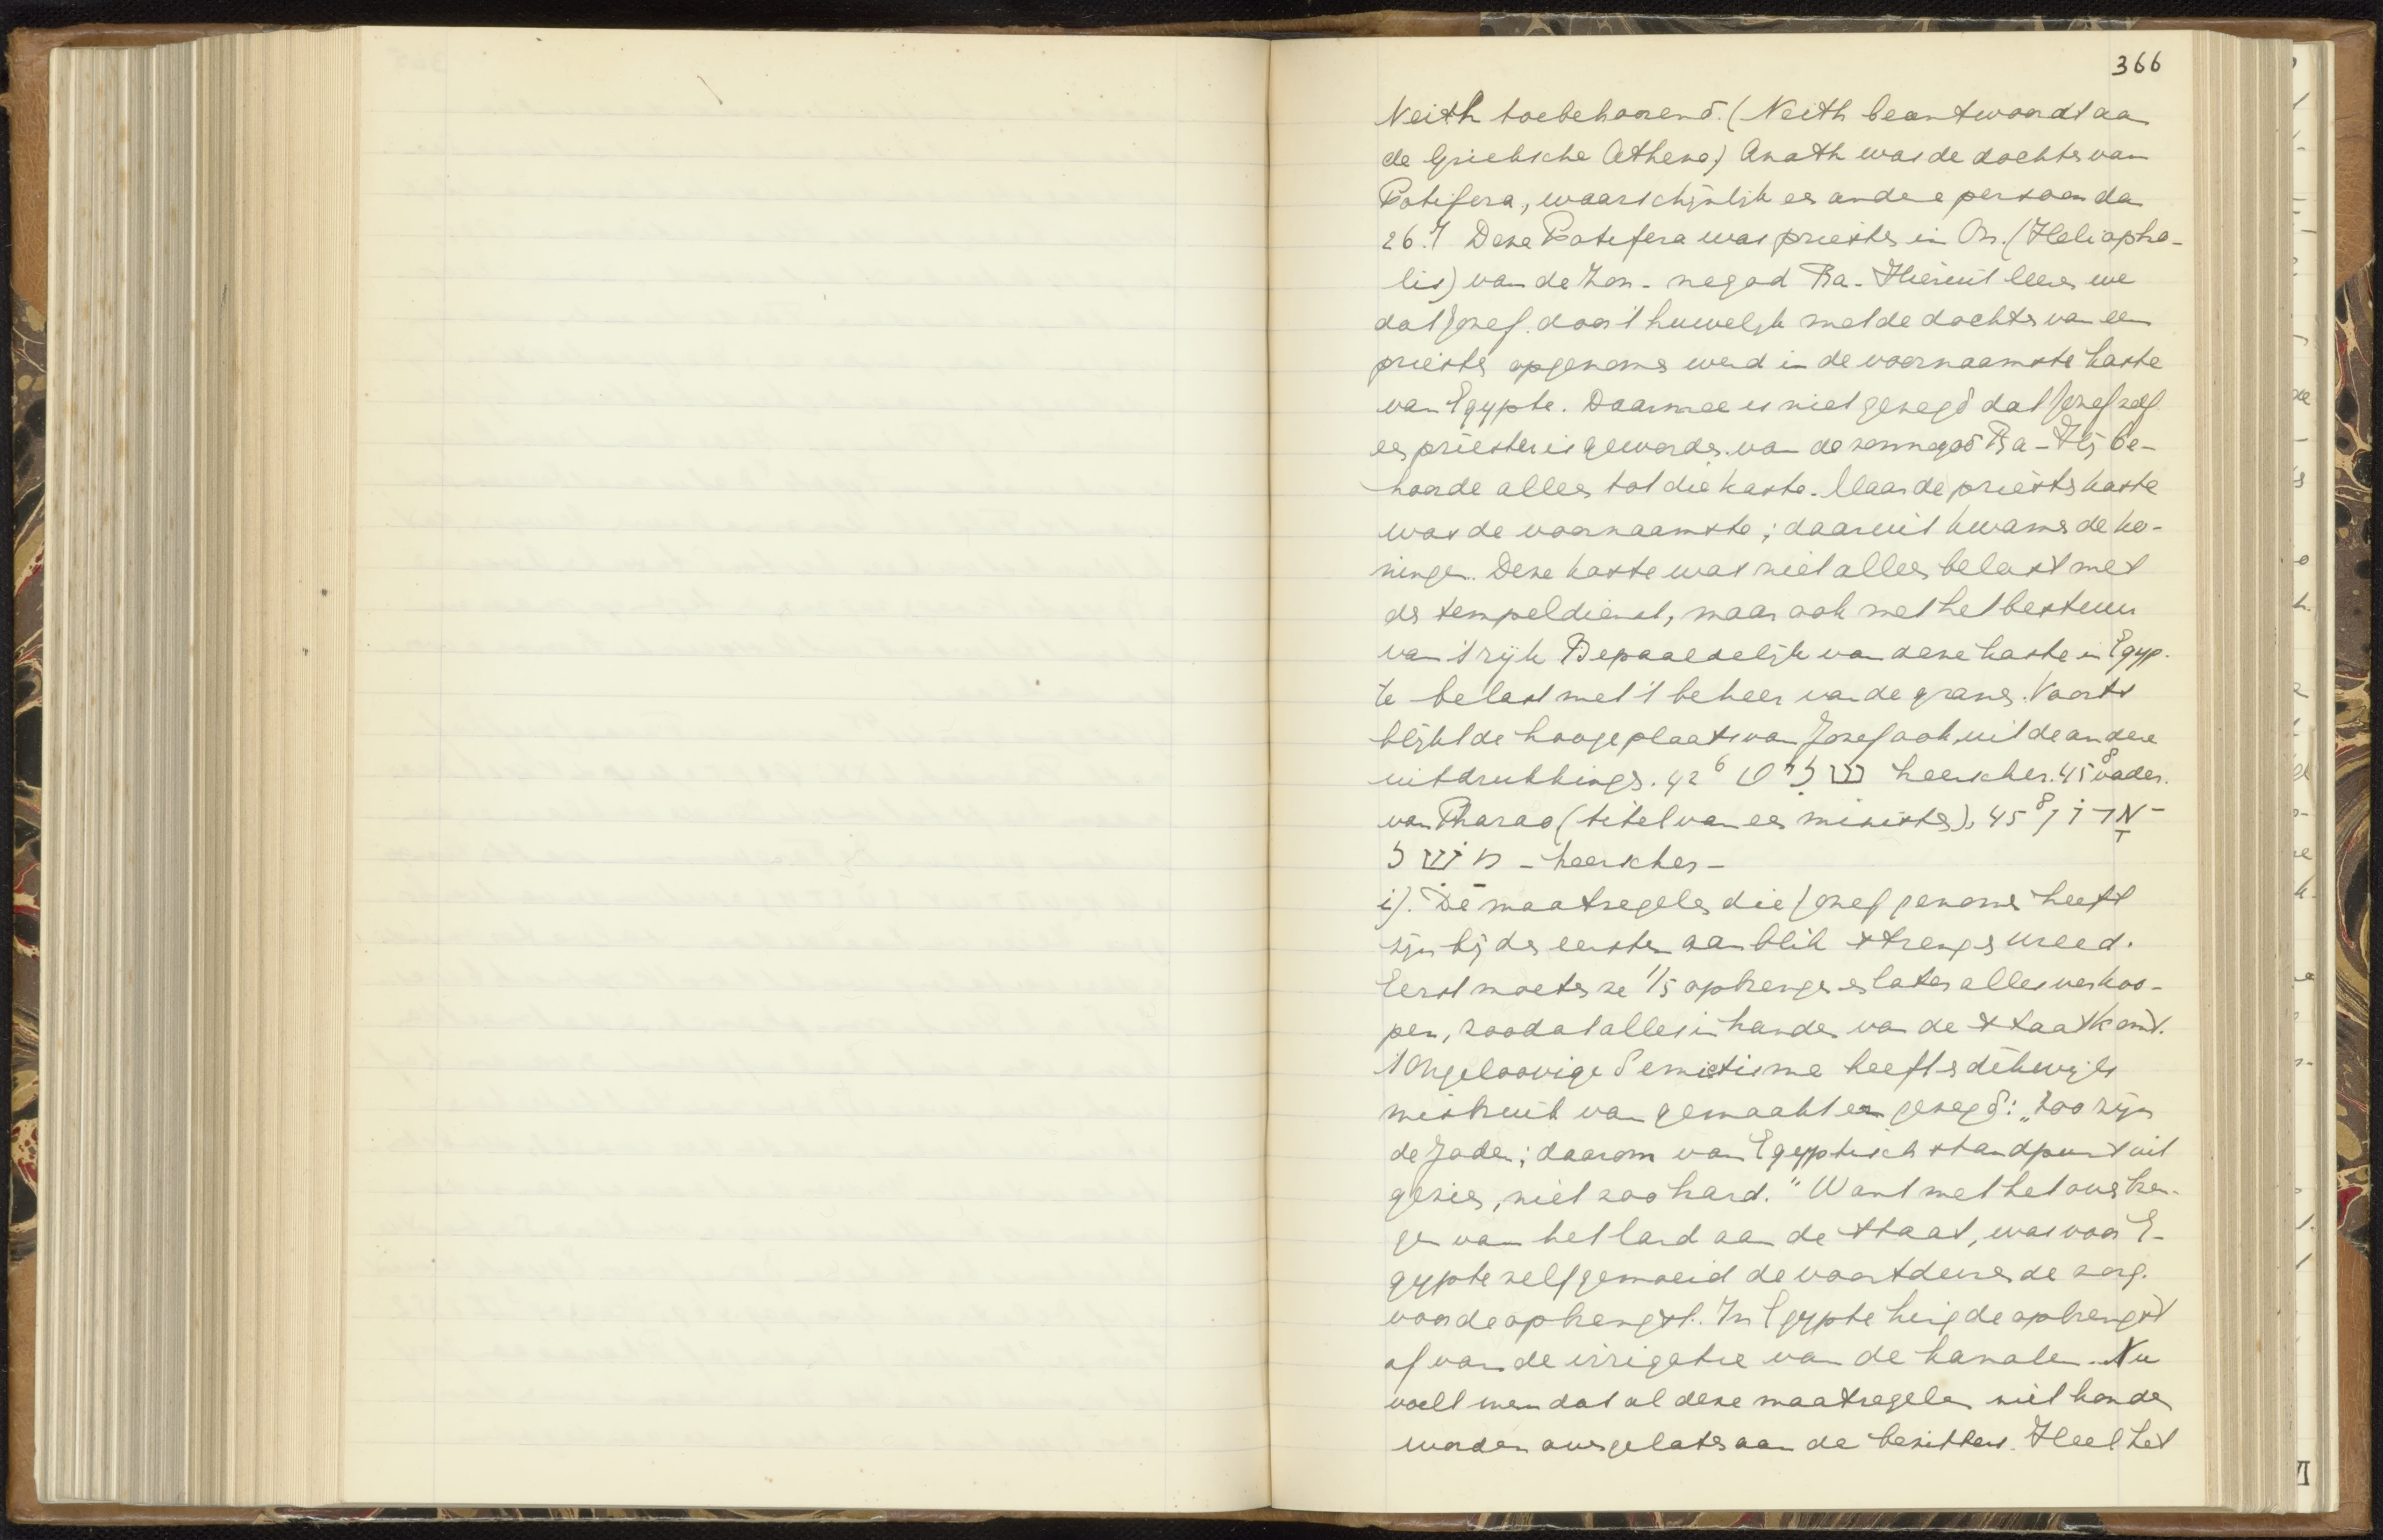 366
Neith toebehoorend. (Neith beantwoordt aan
de Grieksche Athene) Anath was de dochter van
Potifera, waarschijnlijk een andere persoon dan
26.7 Deze Potifera was priester in On. (Heliopho-
lis) van de Zon- negod Ra. Hieruit leeren we
dat Jozef door 't huwelijk met de dochter van een
priester opgenomen werd in de voornaamste kaste
van Egypte. Daarmee is niet gezegd dat Jozef zelf
een priester is geworden van de zonnegod Ra - Hij be-
hoorde alleen tot die kaste. Maar de priesterkaste
was de voornaamste; daaruit kwamen de ko-
ningen. Deze kaste was niet alleen belast met
de tempeldienst, maar ook met het bestuur
van 't rijk Bepaaldelijk van deze kaste in Egyp-
te belast met 't beheer van de granen. Voorts
blijkt de hooge plaats van Jozef ook uit de andere
uitdrukkingen. 42 6 שליט heerscher. 45 8 vader.
van Pharao (titel van een minister), 45 8
משל - heerscher -
i). De maatregelen die Jozef genomen heeft
zijn bij den eersten aanblik streng en wreed.
Eerst moeten ze 1/5 opbrengen en later alles verkoo-
pen, zoodat alles in handen van de staat komt.
't Ongeloovige Semietisme heeft er dikwijls
misbruik van gemaakt en gezegd: "Zoo zijn
de Joden; daarom van Egyptisch standpunt uit
gezien, niet zoo hard." Want met het overbren-
gen van het land aan de staat, was voor E-
gypte zelf gemoeid de voortdurende zorg.
voor de opbrengst. In Egypte hing de opbrengst
af van de irrigatie van de kanalen. Nu
voelt men dat al deze maatregelen niet konden
worden overgelaten aan de bezitters. Heel het